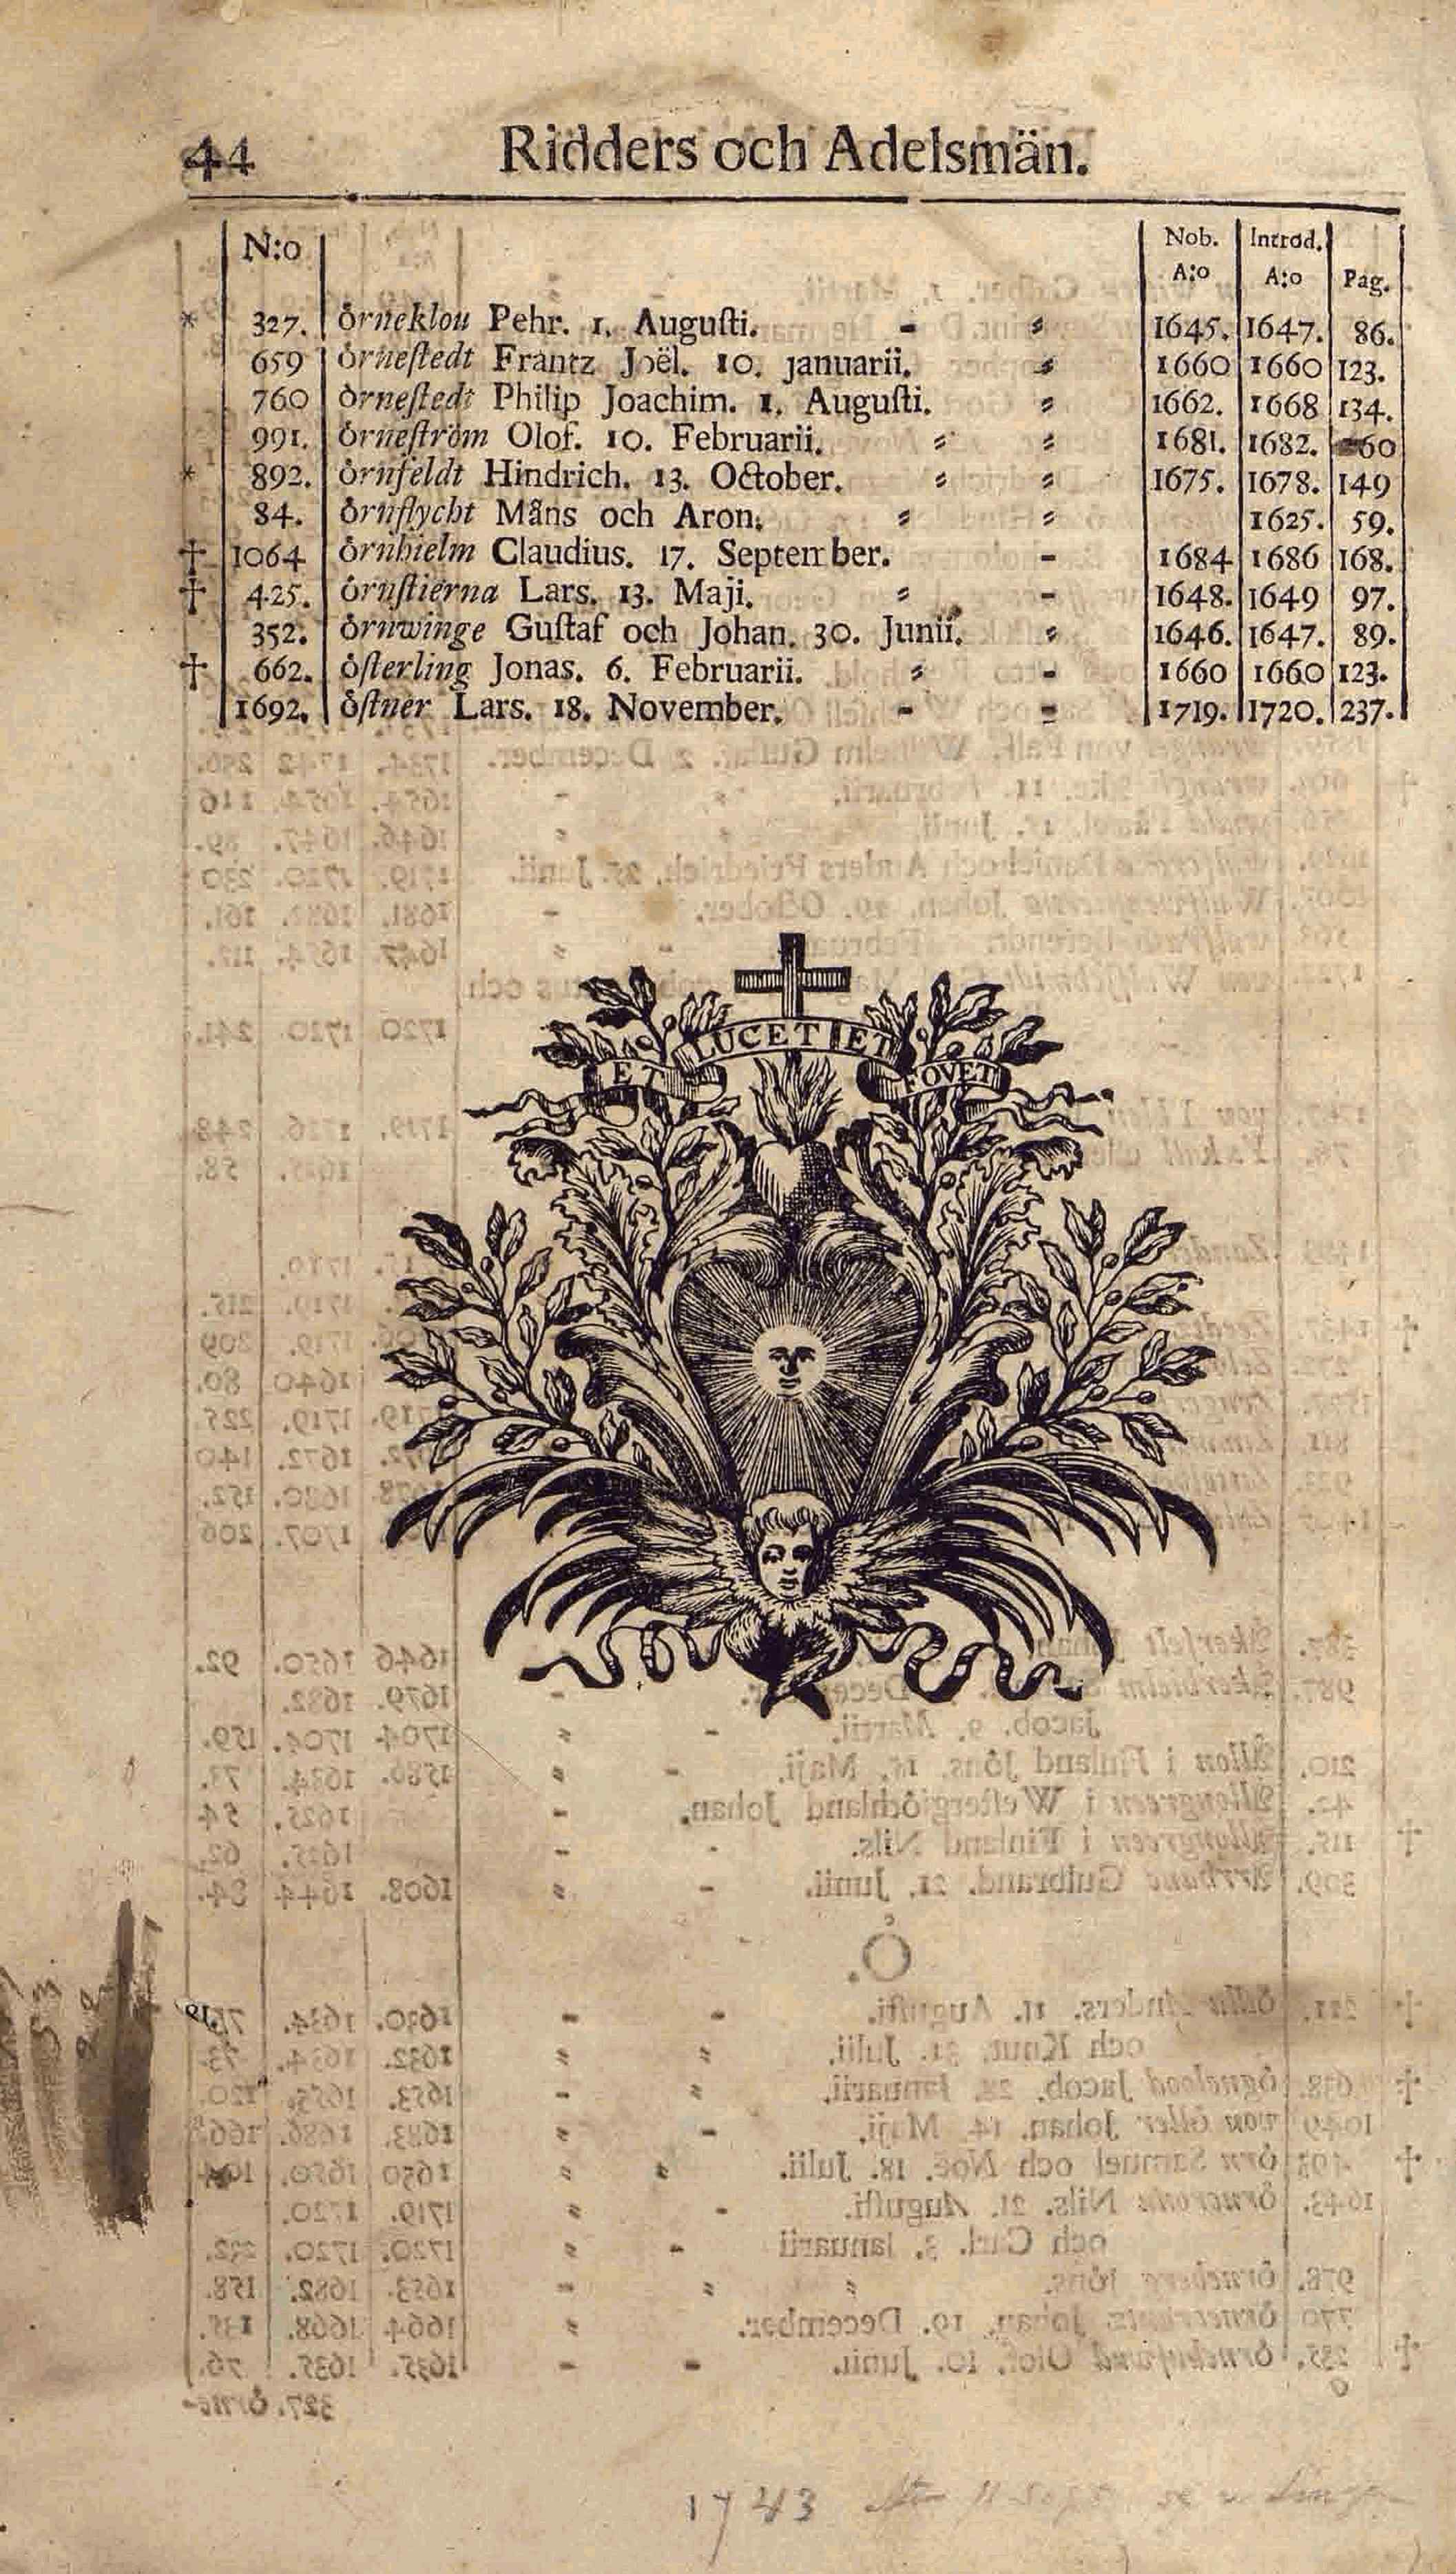 44 Ridders och Adelsmän.
N:o Nob. A:o Introd. A:o Pag.
* 327. örneklou Pehr. 1. Augusti. 1645. 1647. 86.
659 örnestedt Frantz Joël. 10. januarii. 1660 1660 123.
760 örnestedt Philip Joachim. 1. Augusti. 1662. 1668 134.
991. örneström Olof. 10. Februarii. 1681. 1682. 60
* 892. örnfeldt Hindrich. 13. October. 1675. 1678. 149
84. örnflycht Måns och Aron. 1625. 59.
† 1064 örnhielm Claudius. 17. September. 1684 1686 168.
† 425. örnstierna Lars. 13. Maji. 1648. 1649 97.
352. örnwinge Gustaf och Johan. 30. Junii. 1646. 1647. 89.
† 662. österling Jonas. 6. Februarii. 1660 1660 123.
1692. östner Lars. 18. November. 1719. 1720. 237.
ET LUCET ET FOVET
1743